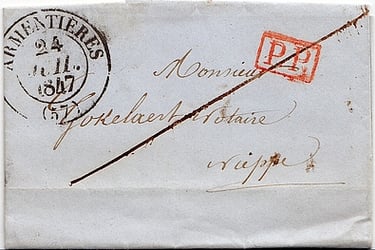 ARMENTIERES
24
JUIL.
1847
(57)
P.P.
Monsieur
Jokelaert Notaire
Nieppe